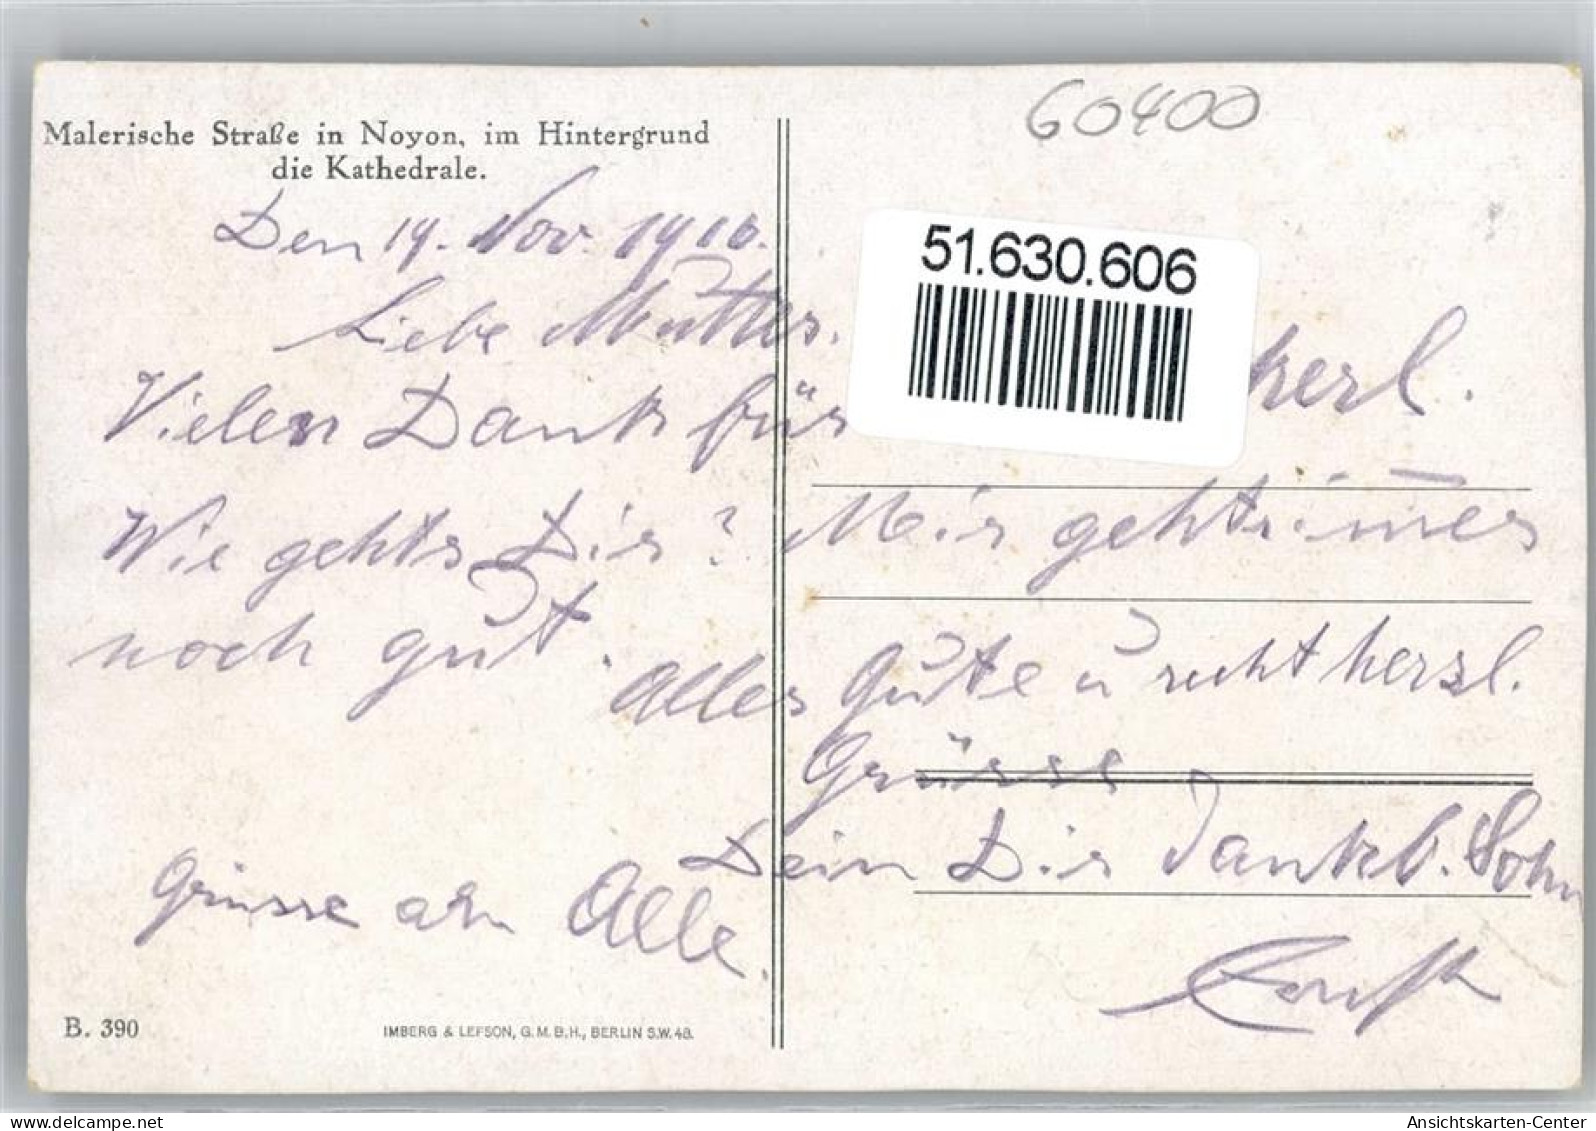 60400
Malerische Straße in Noyon, im Hintergrund
die Kathedrale.
Den 19. Nov. 1916.
51.630.606
Liebe Mutter.
Vielen Dank für kerl.
Wie gehts Dir? Mir geht's immer
noch gut.
Alles Gute u recht herzl.
Grüsse
Dein Dir dankb. Sohn
Grüsse an Alle.
Ernst
B. 390
IMBERG & LEFSON, G.M.B.H., BERLIN S.W. 48.
www.delcampe.net
Ansichtskarten-Center